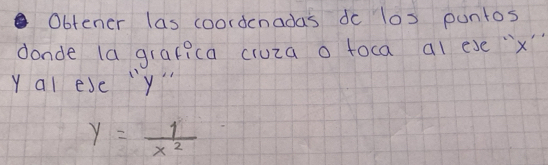 Obtener las coordenadas de los puntos
donde la grafica cruza o toca al eje "x"
y al eje "y"
y = 1/x²